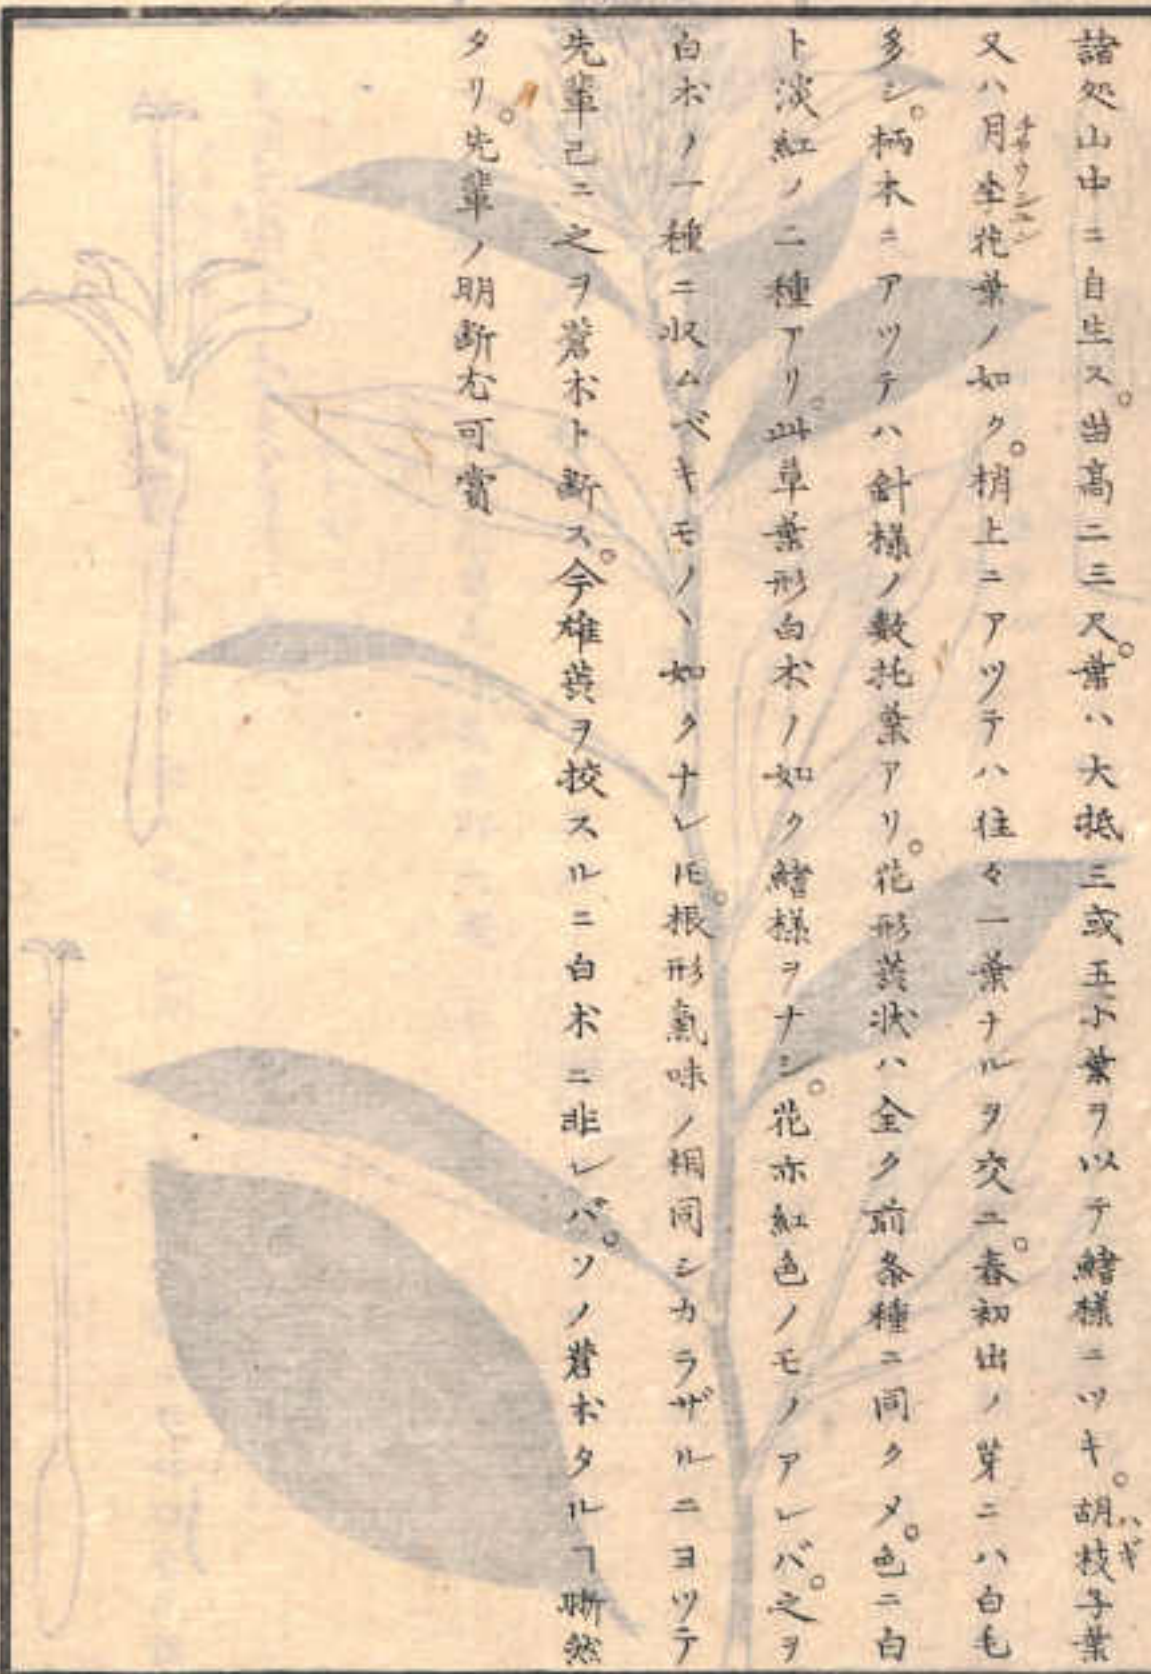 諸処山中ニ自生ス。苗高二三尺。葉ハ大抵三或五小葉ヲ以テ鰭様ニツキ。胡枝子葉
ハギ
又ハ月季花葉ノ如ク。梢上ニアツテハ往々一葉ナルヲ交ユ。春初出ノ芽ニハ白毛
チヤウシユン
多シ。柄本ニアツテハ針様ノ数托葉アリ。花形蕋状ハ全ク前条種ニ同クメ。色ニ白
ト淡紅ノ二種アリ。此草葉形白朮ノ如ク鰭様ヲナシ。花亦紅色ノモノアレバ。之ヲ
白朮ノ一種ニ収ムベキモノヽ如クナレ㽵。根形氣味ノ相同シカラザルニヨツテ
先輩已ニ之ヲ蒼朮ト断ス。今雄蕋ヲ挍スルニ白朮ニ非レバ。ソノ蒼朮タルヿ晰然
タリ。先輩ノ明断尤可賞